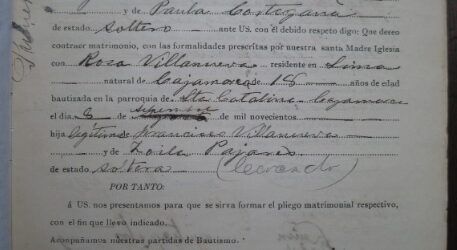 y de Paula Cortegana
de estado soltero ante US. con el debido respeto digo: Que deseo
contraer matrimonio, con las formalidades prescritas por nuestra santa Madre Iglesia
con Rosa Villanueva residente en Lima
natural de Cajamarca de 18 años de edad
bautizada en la parroquia de Sta Catalina Cajamarca
el dia 8 de mil novecientos
hija legítima Francisco Villanueva
y de Zoila Pajares
de estado soltera
POR TANTO:
á US. nos presentamos para que se sirva formar el pliego matrimonial respectivo,
con el fin que llevo indicado.
Acompañamos nuestras partidas de Bautismo.